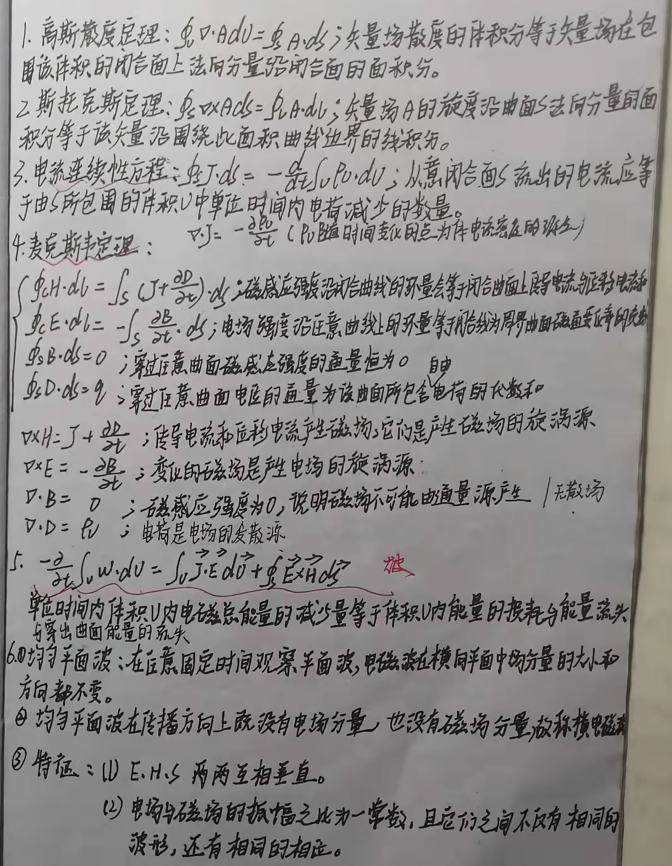 1. 高斯散度定理：∮ᵥ∇·AdU=∮ₛA·ds；矢量场散度的体积分等于矢量场在包
围该体积的闭合面上法向分量沿闭合面的面积分。
2 斯托克斯定理：∮ₛ∇×Ads=∮ᴄA·dl；矢量场A的旋度沿曲面S法向分量的面
积分等于该矢量沿围绕此面积曲线边界的线积分。
3.电流连续性方程：∮ₛJ·ds = -d/dt∫ᵥρᵥ·dU；从意闭合面S流出的电流应等
于由S所包围的体积U中单位时间内电荷减少的数量。
∇·J=-∂ρᵥ/∂t (
4.麦克斯韦定理：
∮ᴄH·dl=∫ₛ(J+∂D/∂t)·ds；磁感应强度沿闭合曲线的环量
∮ᴄE·dl=-∫ₛ∂B/∂t·ds；电场强度沿任意曲线上的环量等于
∮ₛB·ds=0；穿过任意曲面磁感应强度的通量恒为0
自由
∮ₛD·ds=q；穿过任意曲面电位的通量为该曲面所包含电荷的代数和
∇×H=J+∂D/∂t；传导电流和位移电流产生磁场，它们是产生磁场的旋涡源
∇×E=-∂B/∂t；变化的磁场是产生电场的旋涡源.
∇·B= 0；磁感应强度为0，说明磁场不可能由通量源产生 /无散场
∇·D=ρᵥ；电荷是电场的发散源
5. -∂/∂t∫ᵥw·dU=∫ᵥJ·EdU+∮ₛE×Hds 坡
单位时间内体积U内电磁总能量的减少量等于体积U内能量的损耗与能量流失
与穿出曲面能量的流失
6.①均匀平面波：在任意固定时间观察平面波，电磁波在横向平面中场分量的大小和
方向都不变。
② 均匀平面波在传播方向上既没有电场分量，也没有磁场分量，故称横电磁波
③ 特征：(1) E.H.S 两两互相垂直。
(2) 电场与磁场的振幅之比为一常数，且它们之间不仅有相同的
波形，还有相同的相位。